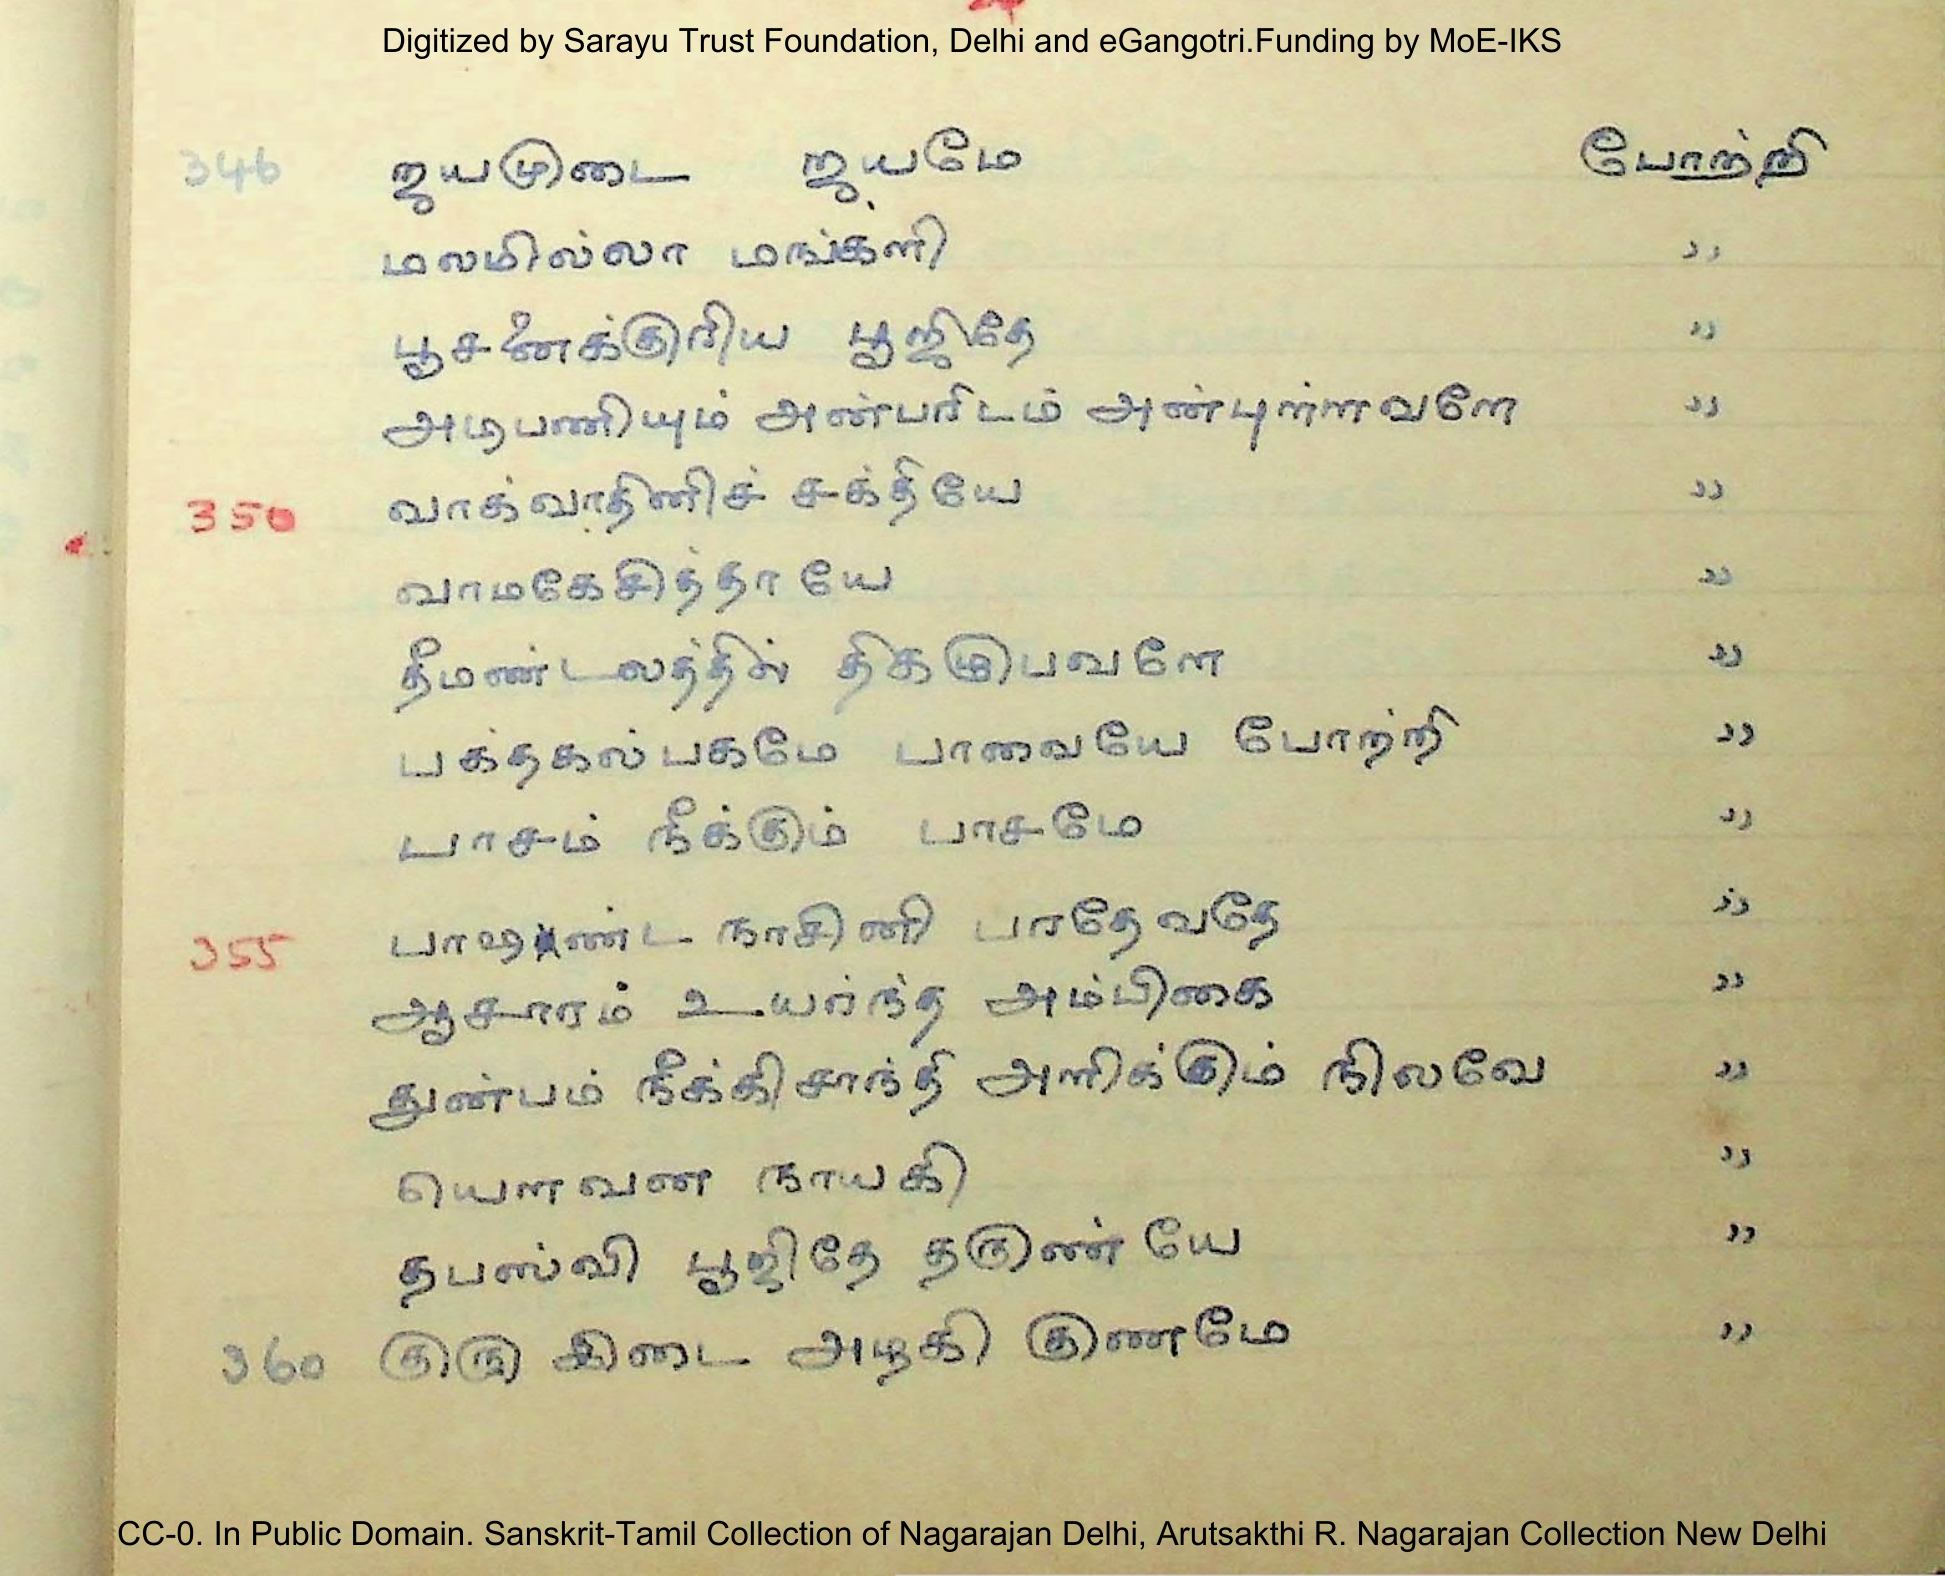 Digitized by Sarayu Trust Foundation, Delhi and eGangotri.Funding by MoE-IKS
346 ஜயமுடை ஜயமே போற்றி
மலமில்லா மங்களி ,,
பூசனைக்குரிய பூஜிதே ,,
அடிபணியும் அண்பரிடம் அண்புள்ளவளே ,,
350 வாக்வாதினிச் சக்தியே ,,
வாமகேசித்தாயே ,,
தீமண்டலத்தில் திகழுபவளே ,,
பக்தகல்பகமே பாவையே போற்றி ,,
பாசம் நீக்கும் பாசமே ,,
355 பாஷண்ட நாசினி பரதேவதே ,,
ஆசாரம் உயர்ந்த அம்பிகை ,,
துண்பம் நீக்கி சாந்தி அளிக்கும் நிலவே ,,
யௌவண நாயகி ,,
தபஸ்வி பூஜிதே தருண்யே ,,
360 குரு அழகி குணமே ,,
CC-0. In Public Domain. Sanskrit-Tamil Collection of Nagarajan Delhi, Arutsakthi R. Nagarajan Collection New Delhi